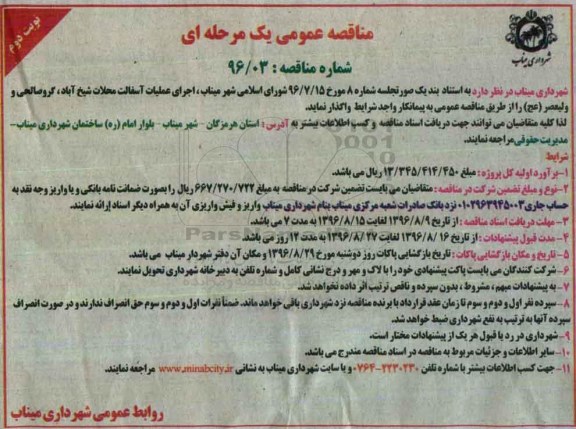 نوبت دوم
شهرداری میناب
مناقصه عمومی یک مرحله ای
شماره مناقصه : ۹۶/۰۳
شهرداری میناب در نظر دارد به استناد بند یک صورتجلسه شماره ۸ مورخ ۹۶/۷/۱۵ شورای اسلامی شهر میناب ، اجرای عملیات آسفالت محلات شیخ آباد ، گروصالحی و
ولیعصر (عج) را از طریق مناقصه عمومی به پیمانکار واجد شرایط واگذار نماید.
لذا کلیه متقاضیان می توانند جهت دریافت اسناد مناقصه و کسب اطلاعات بیشتر به آدرس : استان هرمزگان - شهر میناب - بلوار امام (ره) ساختمان شهرداری میناب-
مدیریت حقوقی مراجعه نمایند.
شرایط
۱-برآورد اولیه کل پروژه : مبلغ ۱۳/۳۴۵/۴۱۴/۴۵۰ ریال می باشد.
۲-نوع و مبلغ تضمین شرکت در مناقصه : متقاضیان می بایست تضمین شرکت در مناقصه به مبلغ ۶۶۷/۲۷۰/۷۲۲ ریال را بصورت ضمانت نامه بانکی و یا واریز وجه نقد به
حساب جاری ۰۱۰۲۹۶۳۹۴۵۰۰۳ نزد بانک صادرات شعبه مرکزی میناب بنام شهرداری میناب واریز و فیش واریزی آن به همراه دیگر اسناد ارائه نمایند.
۳- مهلت دریافت اسناد مناقصه : از تاریخ ۱۳۹۶/۸/۹ لغایت ۱۳۹۶/۸/۱۵ به مدت ۷ می باشد.
۴- مدت قبول پیشنهادات : از تاریخ ۱۳۹۶/۸/۱۶ لغایت ۱۳۹۶/۸/۲۷ به مدت ۱۲ روز می باشد.
۵- تاریخ و مکان بازگشایی پاکات : تاریخ بازگشایی پاکات روز دوشنبه مورخ ۱۳۹۶/۸/۲۹ و مکان آن دفتر شهردار میناب می باشد.
۶- شرکت کنندگان می بایست پاکت پیشنهادی خود را با لاک و مهر و درج نشانی کامل و شماره تلفن به دبیرخانه شهرداری تحویل نمایند.
۷- به پیشنهادات مبهم ، مشروط ، بدون سپرده و ناقص ترتیب اثر داده نخواهد شد.
۸- سپرده نفر اول و دوم و سوم تا زمان عقد قرارداد با برنده مناقصه نزد شهرداری باقی خواهد ماند. ضمناً نفرات اول و دوم و سوم حق انصراف ندارند و در صورت انصراف
سپرده آنها به ترتیب به نفع شهرداری ضبط خواهد شد.
۹- شهرداری در رد یا قبول هر یک از پیشنهادات مختار است.
۱۰-سایر اطلاعات و جزئیات مربوط به مناقصه در اسناد مناقصه مندرج می باشد.
۱۱- جهت کسب اطلاعات بیشتر با شماره تلفن ۲۲۳۰۲۳۰-۰۷۶۴ و یا سایت شهرداری میناب به نشانی www.minabcity.ir مراجعه نمایند.
روابط عمومی شهرداری میناب